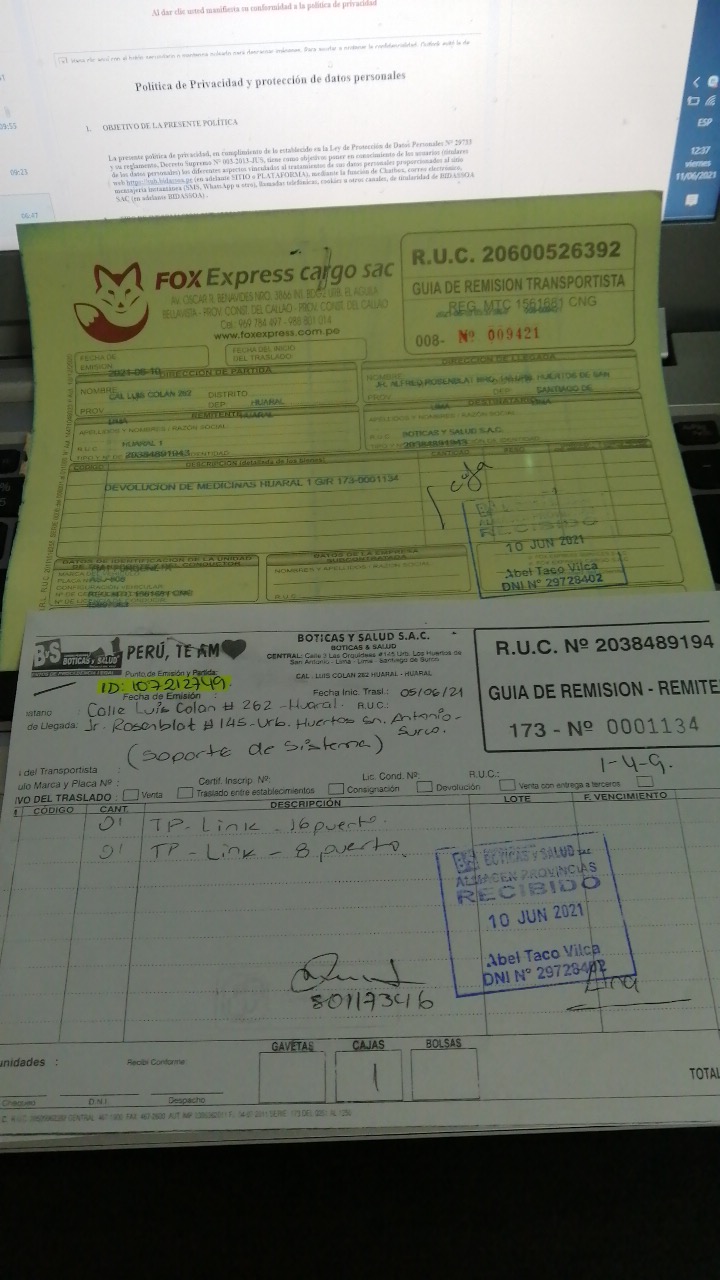 Al dar clic usted manifiesta su conformidad a la política de privacidad
Política de Privacidad y protección de datos personales
1. OBJETIVO DE LA PRESENTE POLÍTICA
La presente política de privacidad, en cumplimiento de lo establecido en la Ley de Protección de Datos Personales N° 29733
y su reglamento, Decreto Supremo N° 003-2013-JUS, tiene como objetivo poner en conocimiento de los usuarios (titulares
de los datos personales) los diferentes aspectos vinculados al tratamiento de sus datos personales proporcionados al sitio
(en adelante SITIO o PLATAFORMA), mediante la función de Chatbox, correo electrónico,
mensajería instantánea (SMS, WhatsApp u otro), llamadas telefónicas, cookies u otros canales, de titularidad de BIDASSOA
SAC (en adelante BIDASSOA).
09:55
09:23
ESP
12:37
viernes
11/06/2021
FOX Express cargo sac
AV. OSCAR R. BENAVIDES NRO. 3866 INT.
BELLAVISTA - PROV. CONST. DEL CALLAO - PROV. CONST. DEL CALLAO
Cel.: 969 784 497 - 986 801 014
www.foxexpress.com.pe
R.U.C. 20600526392
GUIA DE REMISION TRANSPORTISTA
REG. MTC 1561681 CNG
008- Nº 009421
FECHA DE EMISIÓN
FECHA DEL INICIO DEL TRASLADO
DIRECCION DE PARTIDA
DIRECCION DE LLEGADA
NOMBRE CAL LUIS COLAN 262 DISTRITO HUARAL
PROV. LIMA DEP. HUARAL
SANTIAGO DE
REMITENTE
DESTINATARIO
APELLIDOS Y NOMBRES / RAZON SOCIAL
HUARAL 1
R.U.C. 20384891943
BOTICAS Y SALUD S.A.C.
R.U.C. 20384891943
CODIGO DESCRIPCIÓN (detallada de los bienes) CANTIDAD PESO
DEVOLUCION DE MEDICINAS HUARAL 1 G/R 173-0001134
1 caja
RECIBIDO
10 JUN 2021
Abel Taco Vilca
DNI Nº 29728402
DATOS DE IDENTIFICACION DE LA UNIDAD
DATOS DE LA EMPRESA SUBCONTRATADA
NOMBRES Y APELLIDOS / RAZON SOCIAL
R.U.C.
B·S BOTICAS y SALUD
PERÚ, TE AM
BOTICAS Y SALUD S.A.C.
BOTICAS & SALUD
CENTRAL: Calle 2 Las Orquideas #145 Urb. Los Huertos de
San Antonio - Lima - Lima - Santiago de Surco
CAL. LUIS COLAN 262 HUARAL - HUARAL
R.U.C. Nº 2038489194
GUIA DE REMISION - REMITE
173 - Nº 0001134
Punto de Emisión y Partida:
ID: 107212749.
Fecha de Emisión
Fecha Inic. Trasl.: 05/06/21
Calle Luis Colan # 262 - Huaral. R.U.C.:
de Llegada: Jr. Rosenblat #145-Urb. Huertos Sn. Antonio-
Surco.
(Soporte de Sistema)
del Transportista
ulo Marca y Placa Nº :
Certif. Inscrip. Nº:
Lic. Cond. Nº
R.U.C.:
1-4-9.
IVO DEL TRASLADO : Venta Traslado entre establecimientos Consignación Devolución Venta con entrega a terceros
CÓDIGO CANT. DESCRIPCIÓN LOTE F. VENCIMIENTO
01 TP-Link - 16 puerto.
01 TP-Link - 8 puerto.
BOTICAS Y SALUD SAC
ALMACEN PROVINCIAS
RECIBIDO
10 JUN 2021
Abel Taco Vilca
DNI Nº 29728402
80117346
unidades :
Recibí Conforme
GAVETAS CAJAS BOLSAS
1
TOTAL
Chequeo D.N.I. Despacho